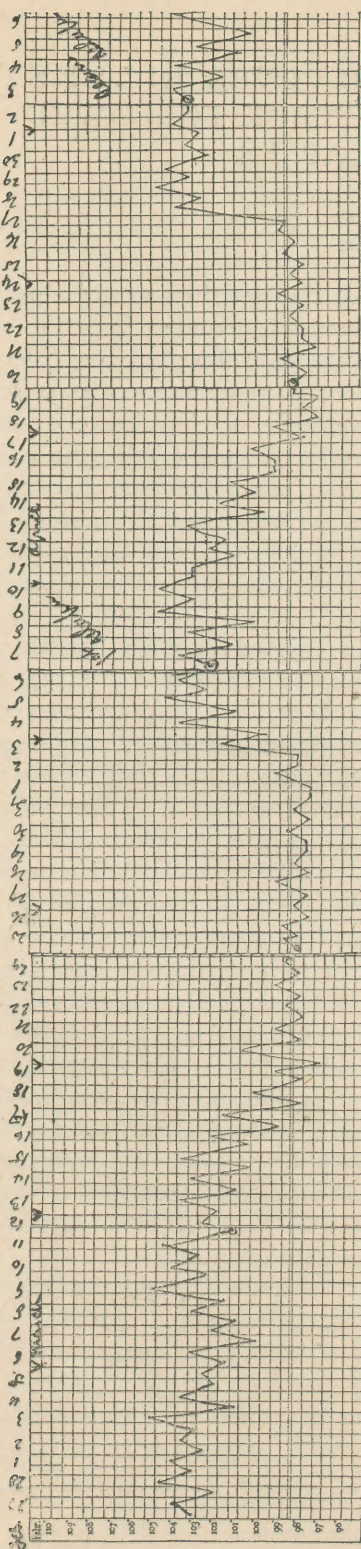 Fahr. 110° 109° 108° 107° 106° 105° 104° 103° 102° 101° 100° 99° 98° 97° 96°
28 1 2 3 4 5 6 7 8 9 10 11 12 13 14 15 16 17 18 19 20 21 22 23 24 25 26 27 28 29 30 31 1 2 3 4 5 6 7 8 9 10 11 12 13 14 15 16 17 18 19 20 21 22 23 24 25 26 27 28 29 30 1 2 3 4 5 6
March
1st
relapse
April
relapse